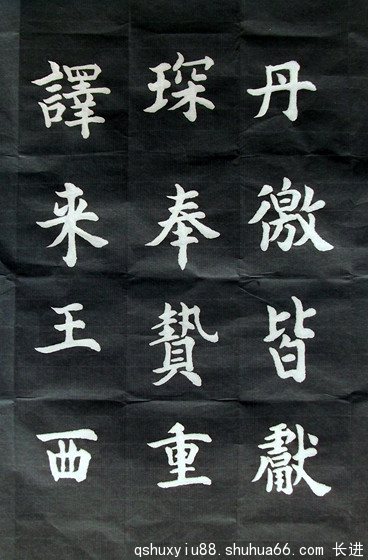 丹徼皆獻
琛奉贄重
譯来王西
qshuxyiu88.shuhua66.com 长进